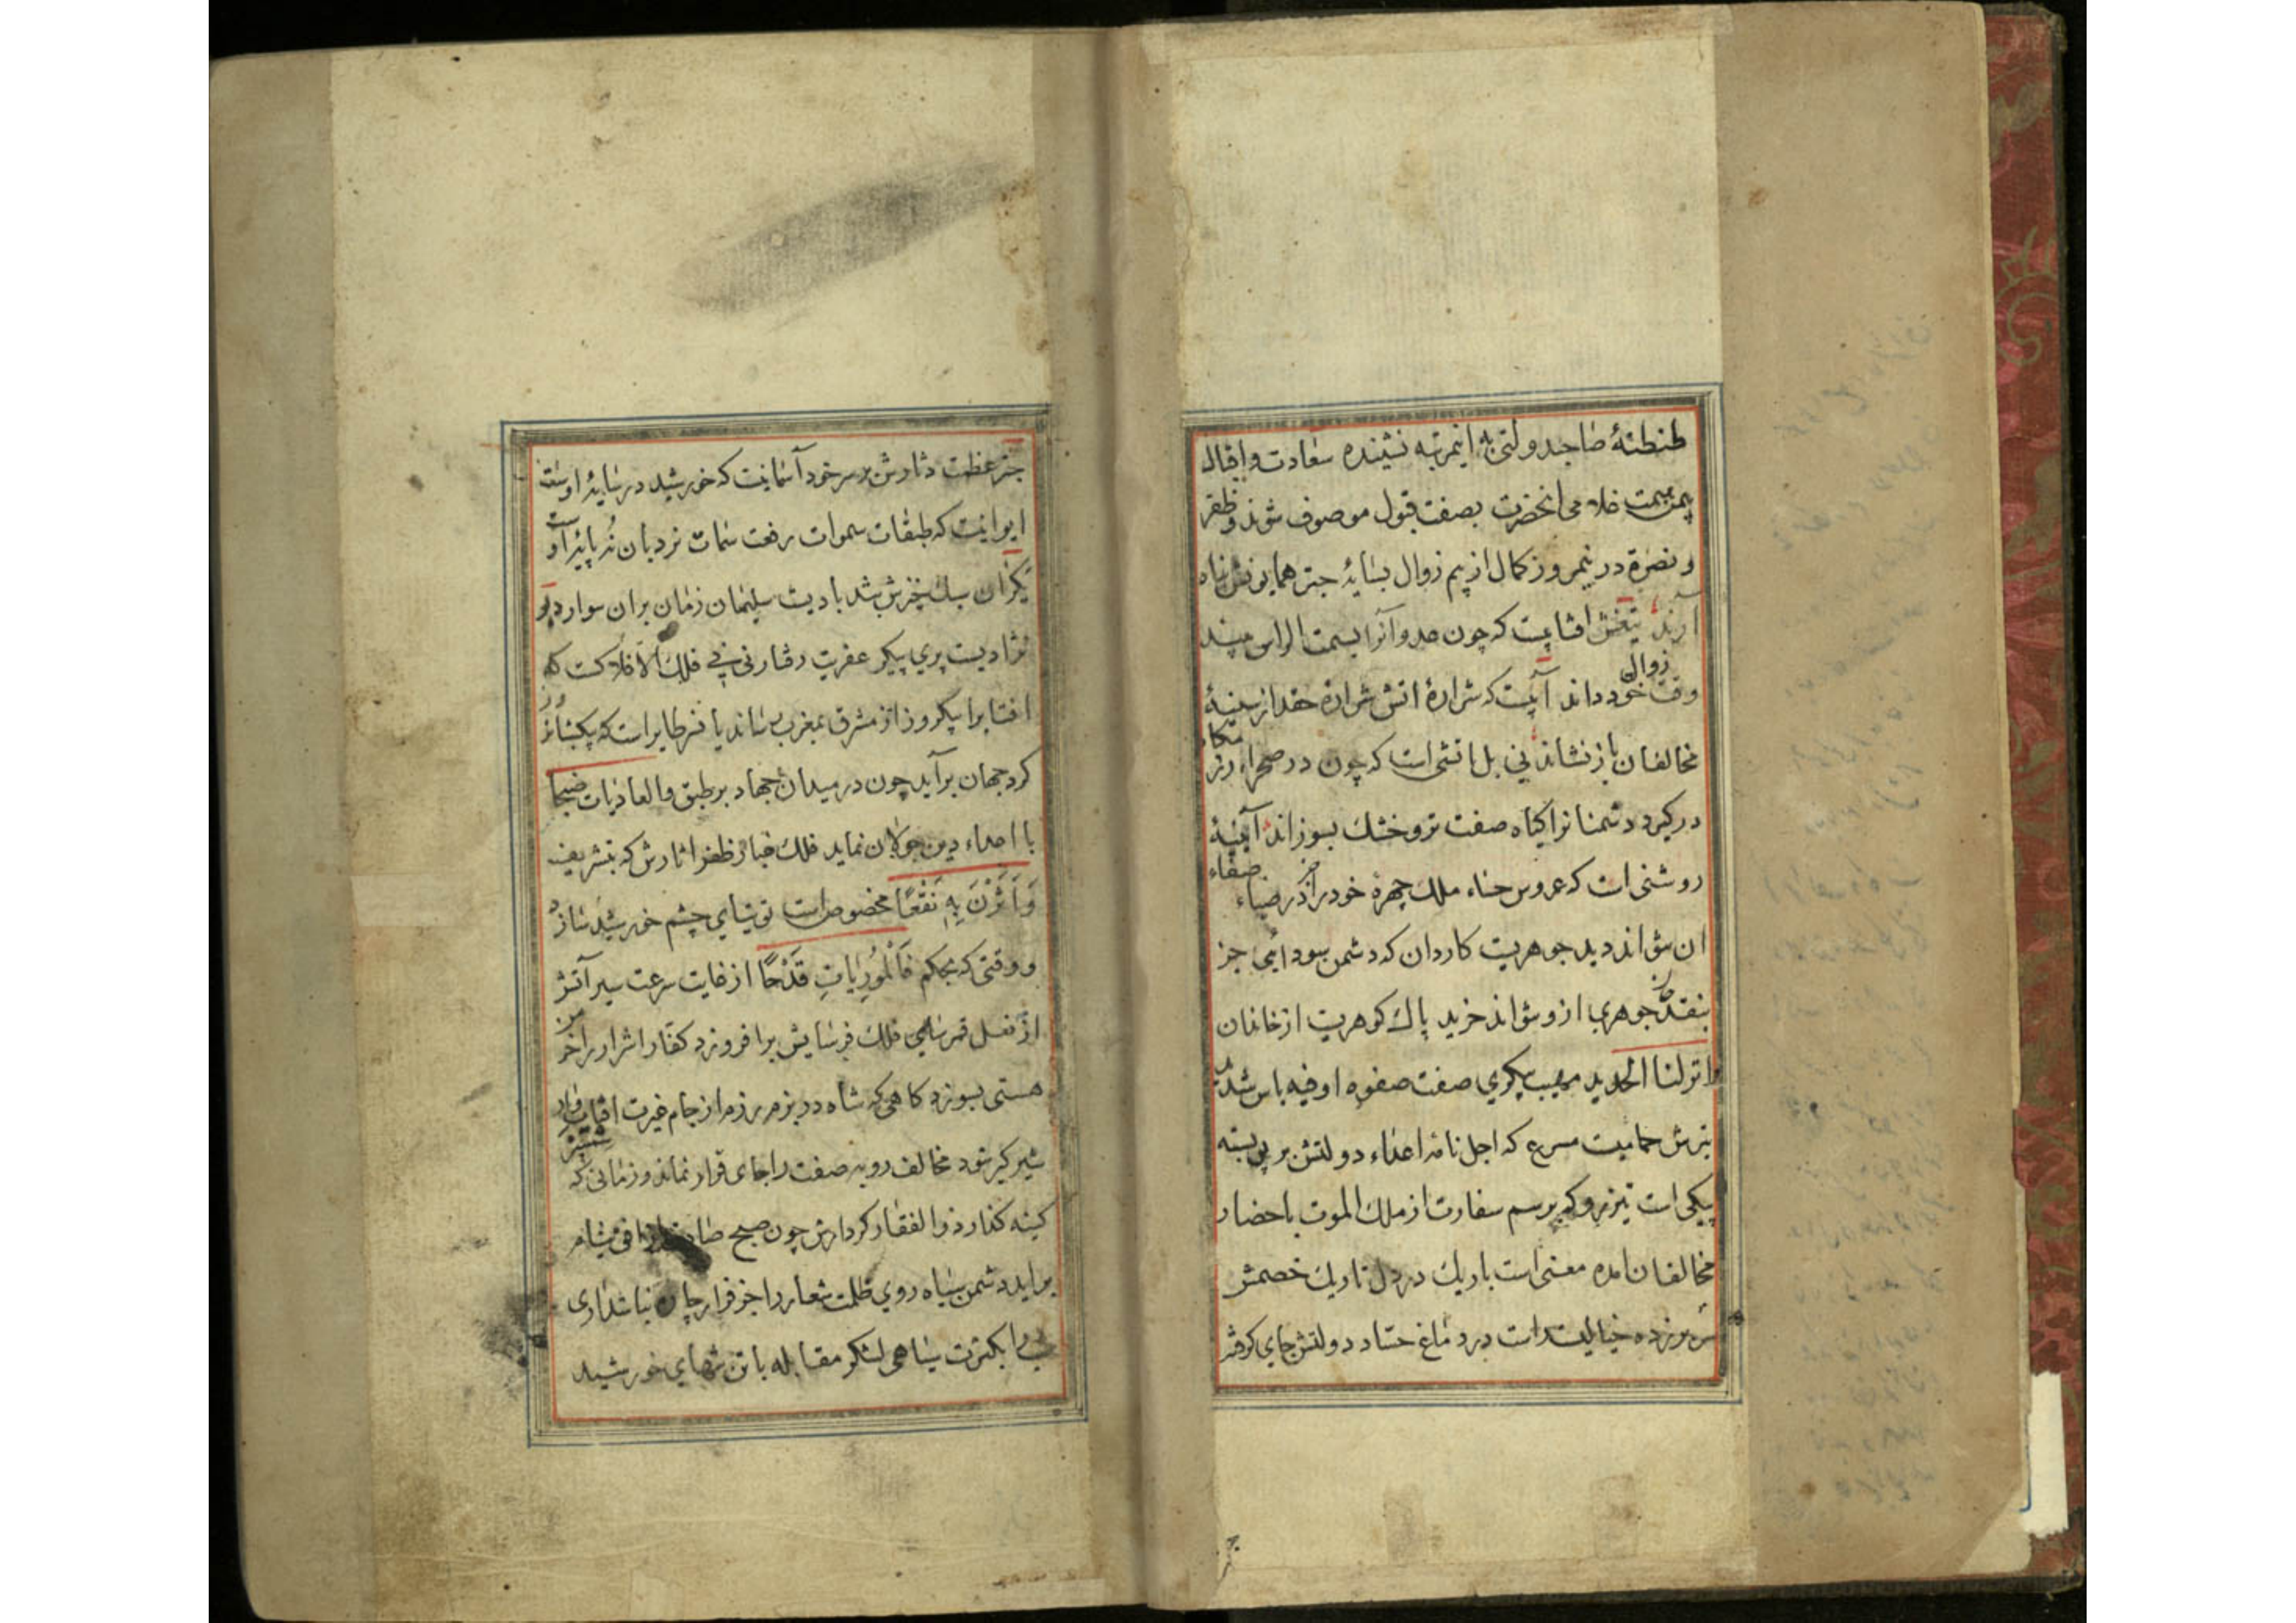 طنطنهٔ صاحبدولتی به اینمرتبه نشیننده سعادت و اقبال
یمن بیمت غلامی انحضرت بصفت قبول موصوف شوند و ظفر
و نصرة در نیمروز کمال از بیم زوال بسایهٔ چتر همایونش پناه
آرند تیغش افتابیت که چون عدو آنرا بسمت الراس بیند
وقت زوال خود داند آبیست که شرارهٔ اتش شرارهٔ حقد از سینهٔ
مخالفان باز نشاند نی بل اتشی است که چون در صحراء رزمگاه
درگیرد دشمنانرا گیاه صفت تر و خشک بسوزاند آیینهٔ
روشنی است که عروس حسناء ملک چهرهٔ خود را در ضیاء صفاء
ان تواند دید جوهریت کاردان که دشمن بسودایی جز
بنقد جوهری ازو نتواند خرید پاک گوهریت از خاندان
انزلنا الحدید مهیب پیکری صفت صفوه او فیه باس شدید
تیرش حمامیت مسرع که اجل نامه اعداء دولتش بر پر بسته
پیکی است تیزرو که برسم سفارت از ملک الموت باحضار
مخالفان امده معنی است باریک در دل تاریک خصمش
سر برزده خیالیست راست در دماغ حساد دولتش جای گرفته
چتر عظمت دثارش بر سر خود آسمانیت که خورشید در سایهٔ اوست
ایوانیت که طبقات سموات رفعت سمات نردبان نه پایهٔ اوست
یکران سبک خیزش بادیت سلیمان زمان بران سوار دیو
نژادیست پری پیکر عفریت رفتار نی نی فلک الافلاکست که
افتابرا بیکروز از مشرق بمغرب رساند یا نسر طایر است که بیکشبانروز
گرد جهان برآید چون در میدان جهاد بر طبق والعادیات ضبحا
با اعداء دین جولان نماید فلک غبار ظفر اثارش که بتشریف
وَاَثَرْنَ بِهِ نَقْعًا مخصوص است توتیای چشم خورشید سازد
و وقتی که بحکم فَالْمُورِیَاتِ قَدْحًا از غایت سرعت سیر آتش
از نعل قمرسای فلک فرسایش برافروزد کفار اشرار را خرمن
هستی بسوزد کاهی که شاه در بزم رزم از جام غیرت افتاب وار
شیرگیر شود مخالف روبه صفت را جای قرار نماند و زمانی که شمشیر
کینه گذار ذوالفقار کردارش چون صبح صادق از افق نیام
براید دشمن سیاه روی ظلمت شعار را جز فرار چاره نباشد آری
شب را بکثرت سیاهی لشکر مقابله با تن تنهای خورشید